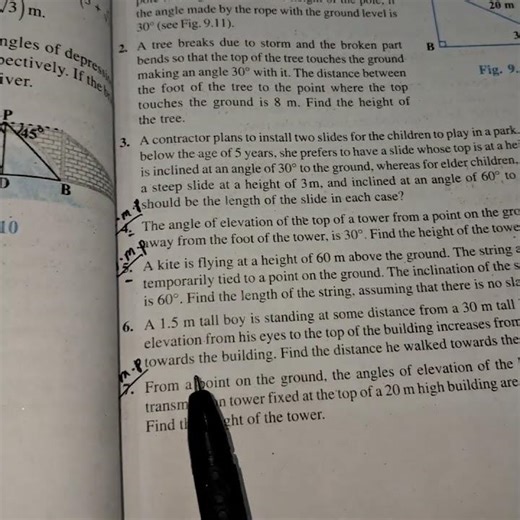 √3) m.
ngles of depress
pectively. If the
iver.
P
45°
D
B
10
the angle made by the rope with the ground level is
30° (see Fig. 9.11).
20 m
B
Fig. 9.
2. A tree breaks due to storm and the broken part
bends so that the top of the tree touches the ground
making an angle 30° with it. The distance between
the foot of the tree to the point where the top
touches the ground is 8 m. Find the height of
the tree.
3. A contractor plans to install two slides for the children to play in a park.
below the age of 5 years, she prefers to have a slide whose top is at a he
is inclined at an angle of 30° to the ground, whereas for elder children,
a steep slide at a height of 3m, and inclined at an angle of 60° to
should be the length of the slide in each case?
The angle of elevation of the top of a tower from a point on the gro
away from the foot of the tower, is 30°. Find the height of the towe
m.p
A kite is flying at a height of 60 m above the ground. The string a
temporarily tied to a point on the ground. The inclination of the s
is 60°. Find the length of the string, assuming that there is no sla
6. A 1.5 m tall boy is standing at some distance from a 30 m tall
elevation from his eyes to the top of the building increases from
towards the building. Find the distance he walked towards the
m.p
7. From a point on the ground, the angles of elevation of the
transm n tower fixed at the top of a 20 m high building are
Find th ght of the tower.